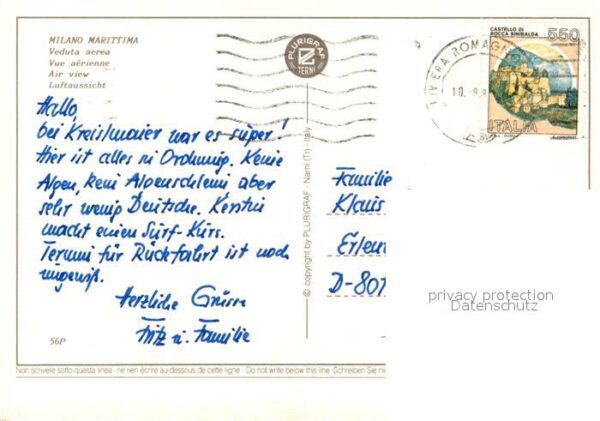 MILANO MARITTIMA
Veduta aerea
Vue aérienne
Air view
Luftaussicht
Hallo,
bei Kreislmaier war es super!
Hier ist alles in Ordnung. Keine
Alpen, kein Alpenschleim aber
sehr wenig Deutsche. Kerstin
macht einen Surf-Kurs.
Termin für Rückfahrt ist noch
ungewiß.
Herzliche Grüsse
Fritz u. Familie
56P
PLURIGRAF
TERNI
© copyright by PLURIGRAF - Narni (Tr) - Italy
CASTELLO DI
ROCCA SINIBALDA
550
ITALIA
RIVIERA ROMAGN
10.-8.8
Familie
Klaus
Erlen
D-801
privacy protection
Datenschutz
Non scrivere sotto questa linea - ne rien écrire au-dessous de cette ligne - Do not write below this line - Schreiben Sie ni